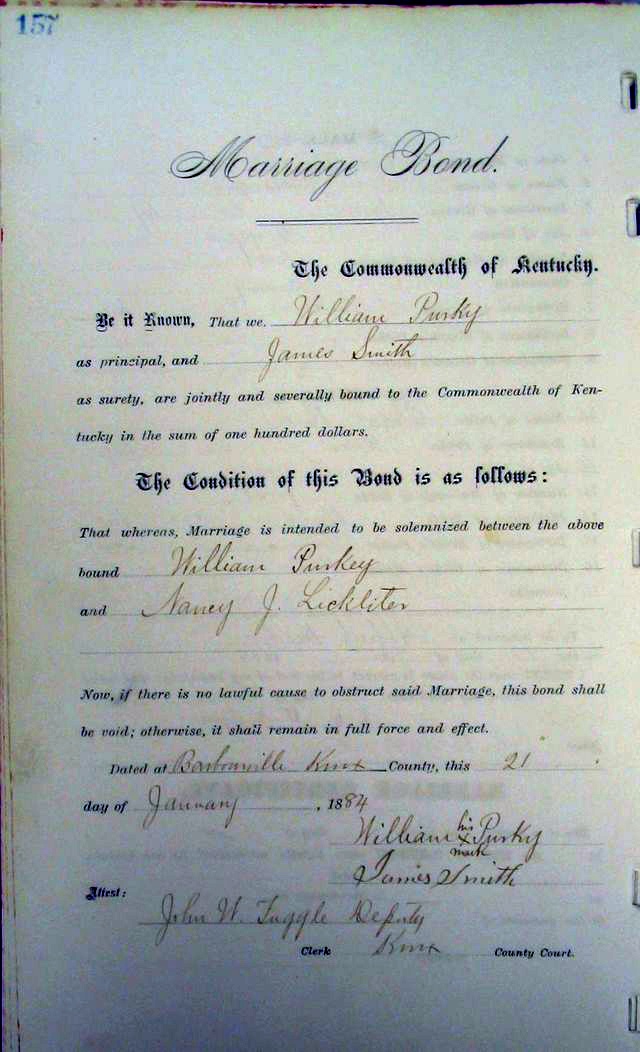 157
Marriage Bond.
The Commonwealth of Kentucky.
Be it Known, That we. William Purky
as principal, and James Smith
as surety, are jointly and severally bound to the Commonwealth of Ken-
tucky in the sum of one hundred dollars.
The Condition of this Bond is as follows:
That whereas, Marriage is intended to be solemnized between the above
bound William Purkey
and Nancy J. Lickliter
Now, if there is no lawful cause to obstruct said Marriage, this bond shall
be void; otherwise, it shall remain in full force and effect.
Dated at Barbourville Knox County, this 21
day of January, 1884
William his x mark Purky
James Smith
Attest:
John W. Tuggle Deputy
Clerk Knox County Court.